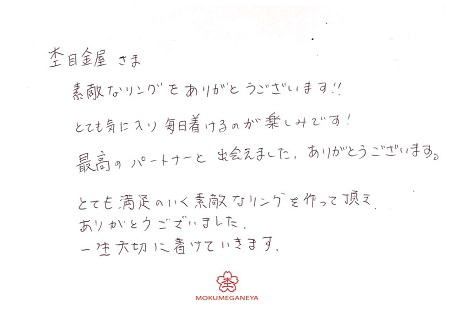 杢目金屋 さま
素敵なリングをありがとうございます!!
とても気に入り毎日着けるのが楽しみです!
最高のパートナーと出会えました。ありがとうございます。
とても満足のいく素敵なリングを作って頂き、
ありがとうございました。
一生大切に着けていきます。
杢
MOKUMEGANEYA